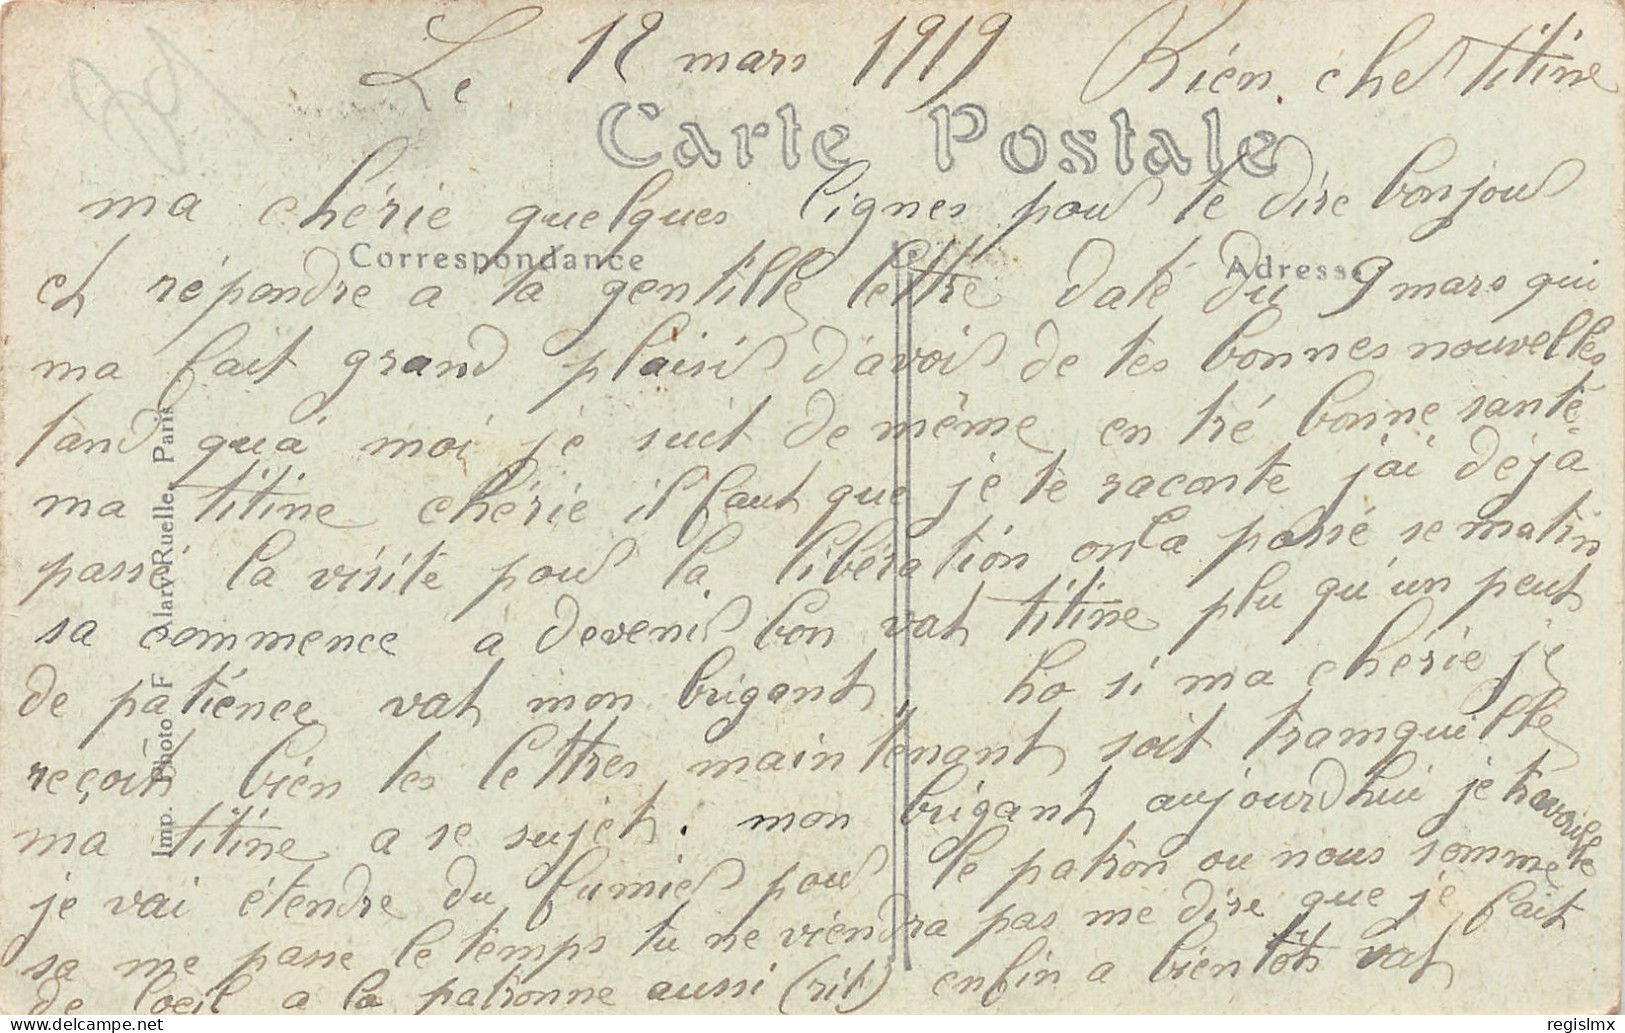 Le 12 mars 1919 Rien che titine
Carte Postale
ma chérie quelques lignes pour te dire bonjour
Correspondance
Adresse
et répondre a ta gentille lettre daté du 9 mars qui
ma fait grand plaisir d'avoir de tes bonnes nouvelles
tand qu'a moi je suit de même en tré bonne santé
ma titine chérie il faut que je te raconte j'ai déjà
passé la visite pour la libération on la passé se matin
sa commence a devenir bon vat titine plu qu'un peut
de patience vat mon brigant ho si ma chérie je
reçoit bien tes lettres maintenant soit tramquille
ma titine a se sujet. mon brigant aujourdhui je travaille
je vai étendre du fumier pour le patron ou nous somme te
sa me passe le temps tu ne viendra pas me dire que je fait
de loeil a la patronne aussi (rit) enfin a bientôt vat
Imp. Photo F Alary Ruelle, Paris
regislmx